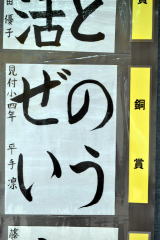 賞
と
活
田 優子
銅賞
のう
ぜい
見付小四年 平手 凛